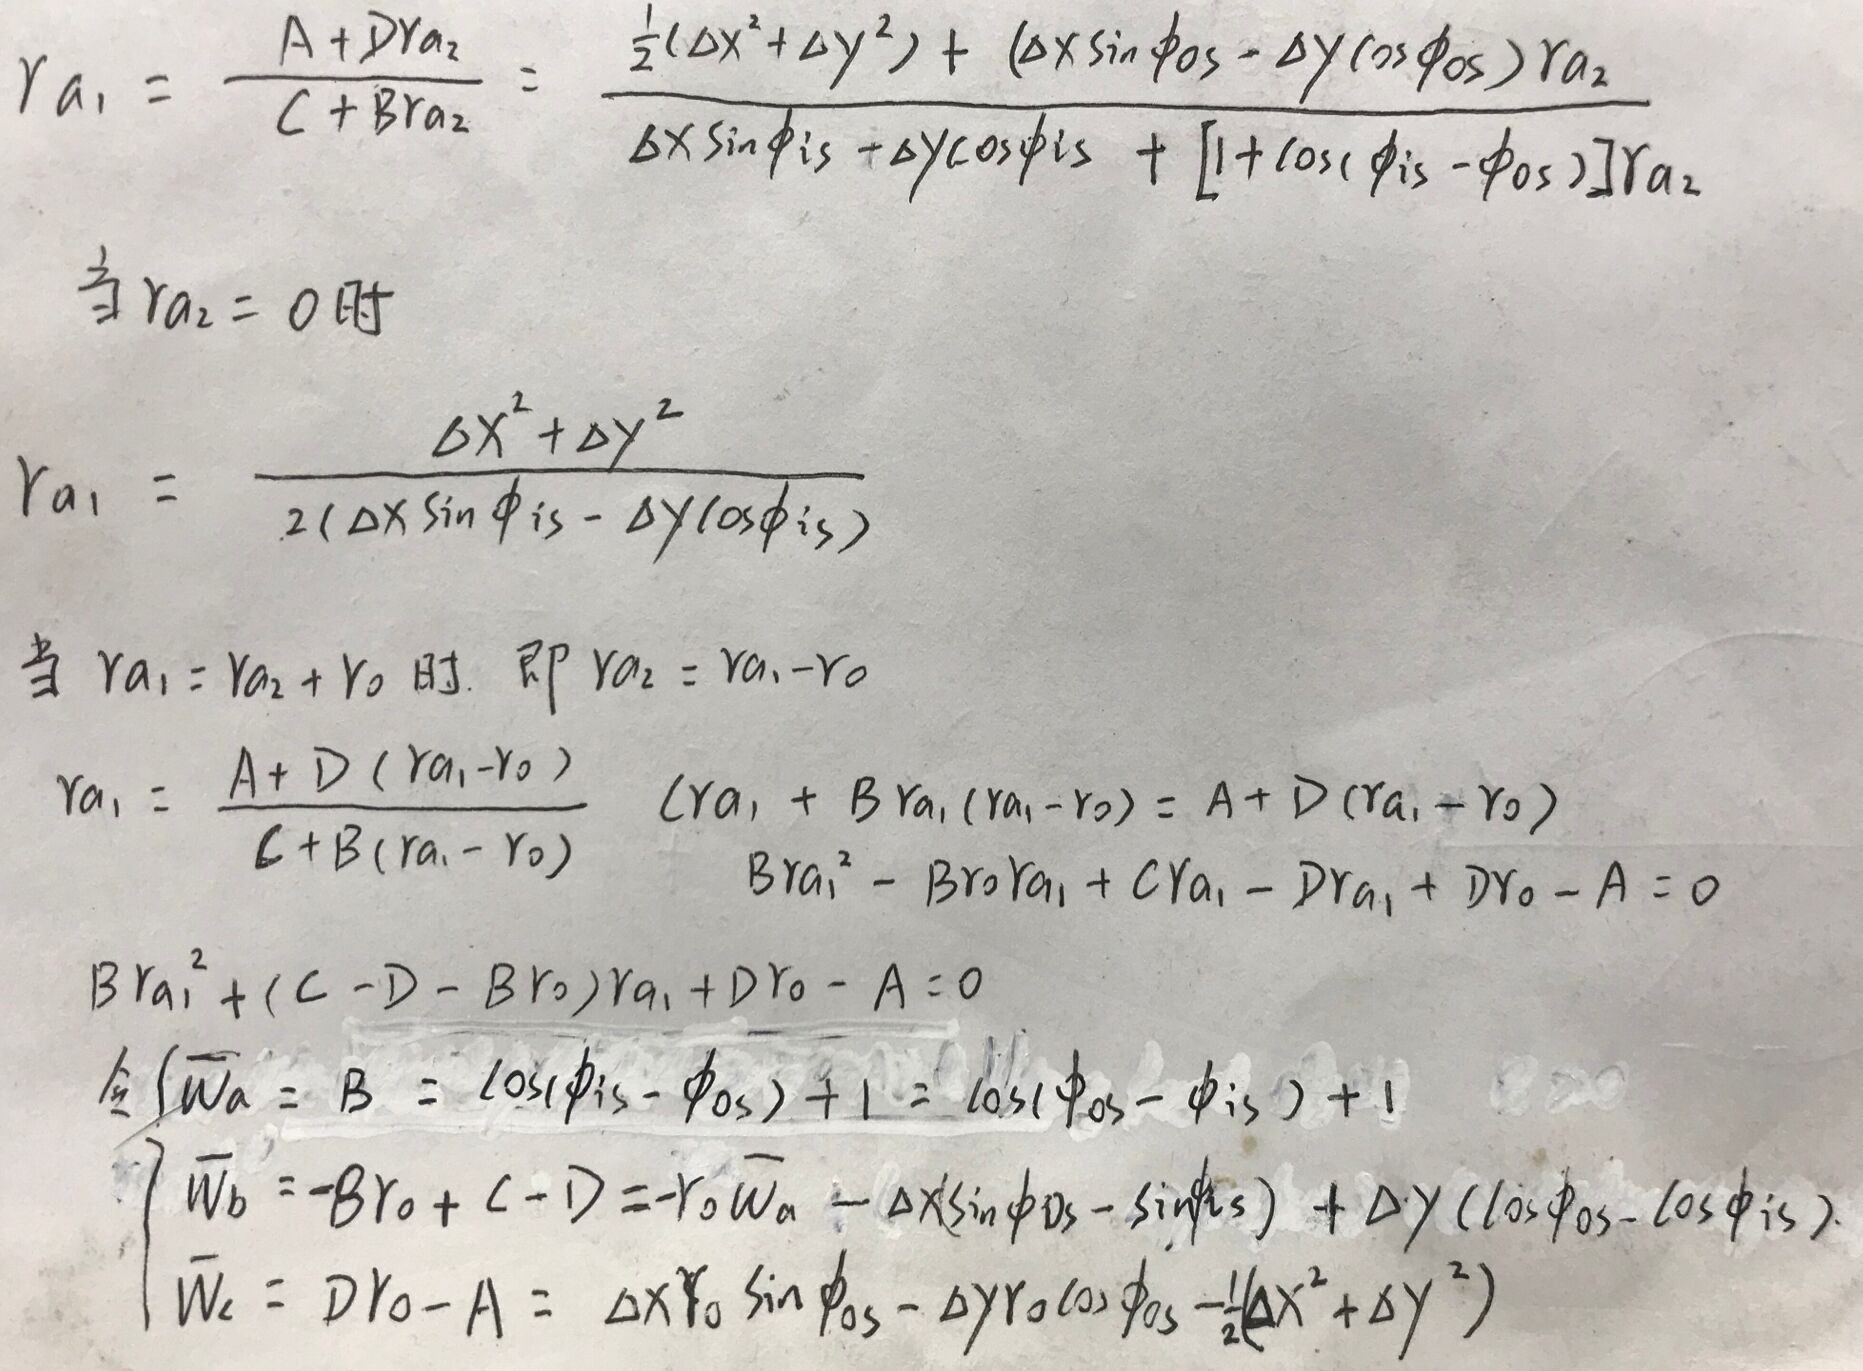 ra₁ = (A + Dra₂)/(C + Bra₂) = (½(Δx² + Δy²) + (Δx sinϕos - Δy cosϕos)ra₂)/(Δx sinϕis + Δy cosϕis + [1 + cos(ϕis - ϕos)]ra₂)
当 ra₂ = 0 时
ra₁ = (Δx² + Δy²)/(2(Δx sinϕis - Δy cosϕis))
当 ra₁ = ra₂ + r₀ 时. 即 ra₂ = ra₁ - r₀
ra₁ = (A + D(ra₁ - r₀))/(C + B(ra₁ - r₀))  Cra₁ + Bra₁(ra₁ - r₀) = A + D(ra₁ - r₀)
Bra₁² - Br₀ra₁ + Cra₁ - Dra₁ + Dr₀ - A = 0
Bra₁² + (C - D - Br₀)ra₁ + Dr₀ - A = 0
令 { W̄a = B = cos(ϕis - ϕos) + 1 = cos(ϕos - ϕis) + 1
W̄b = -Br₀ + C - D = -r₀W̄a - Δx(sinϕos - sinϕis) + Δy(cosϕos - cosϕis).
W̄c = Dr₀ - A = Δx r₀ sinϕos - Δy r₀ cosϕos - ½(Δx² + Δy²)